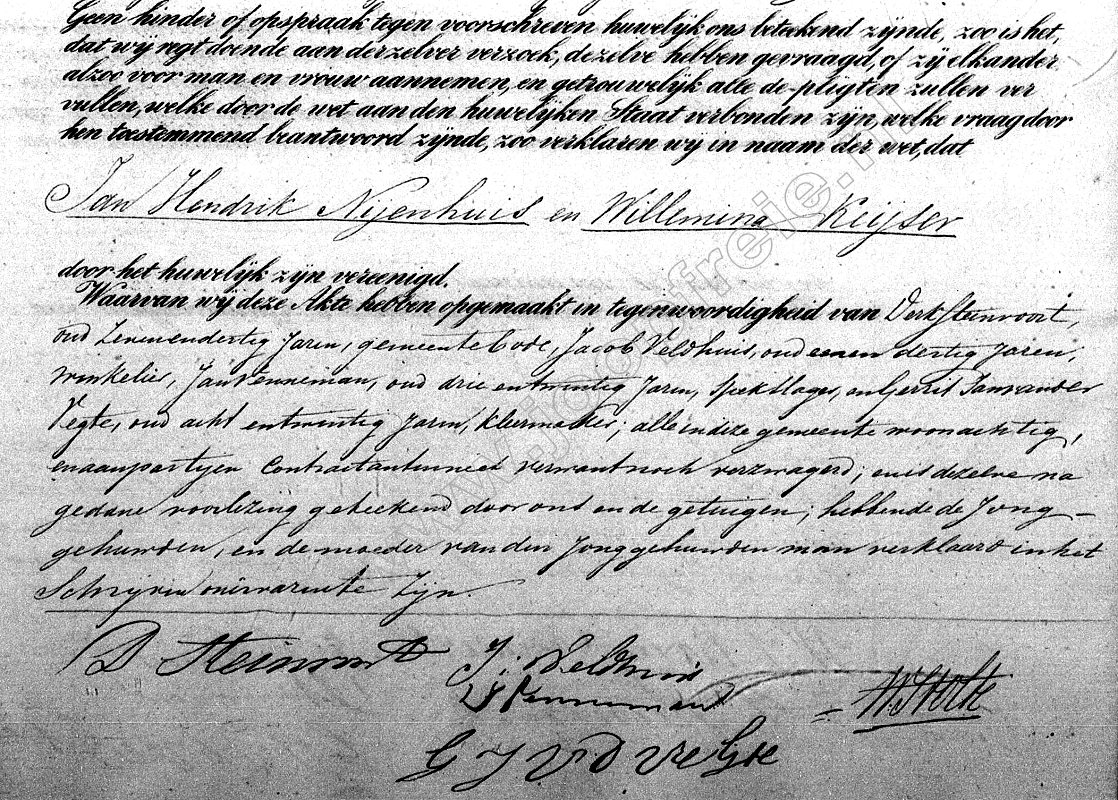 Geen hinder of opspraak tegen voorschreven huwelijk ons beteekend zijnde, zoo is het,
dat wij regt doende aan derzelver verzoek, dezelve hebben gevraagd, of zij elkander
alzoo voor man en vrouw aannemen, en getrouwelijk alle de pligten zullen ver
vullen, welke door de wet aan den huwelijken Staat verbonden zijn, welke vraag door
hen toestemmend beantwoord zijnde, zoo verklaren wij in naam der wet, dat
Jan Hendrik Nijenhuis en Willemina Keijser
door het huwelijk zijn vereenigd.
Waarvan wij deze Akte hebben opgemaakt in tegenwoordigheid van Derk Steinvoort,
oud zevenendertig jaren, gemeentebode, Jacob Veldhuis, oud eenen dertig jaren,
winkelier, Jan Penneman, oud drie entwintig jaren, spekslager, en Gerrit Jan van der
Vegte, oud acht entwintig jaren, kleermaker; alle in deze gemeente woonachtig,
en aan partijen Contractanten niet vermant noch verzwagerd; en is dezelve na
gedane voorlezing geteekend door ons en de getuigen; hebbende de Jong-
gehuwden, en de moeder van den Jonggehuwden man verklaard in het
Schrijven onervaren te zijn.
D Steinvoort
J: Veldhuis
J Penneman
G J V D Vegte
www.jooapfreije.nl